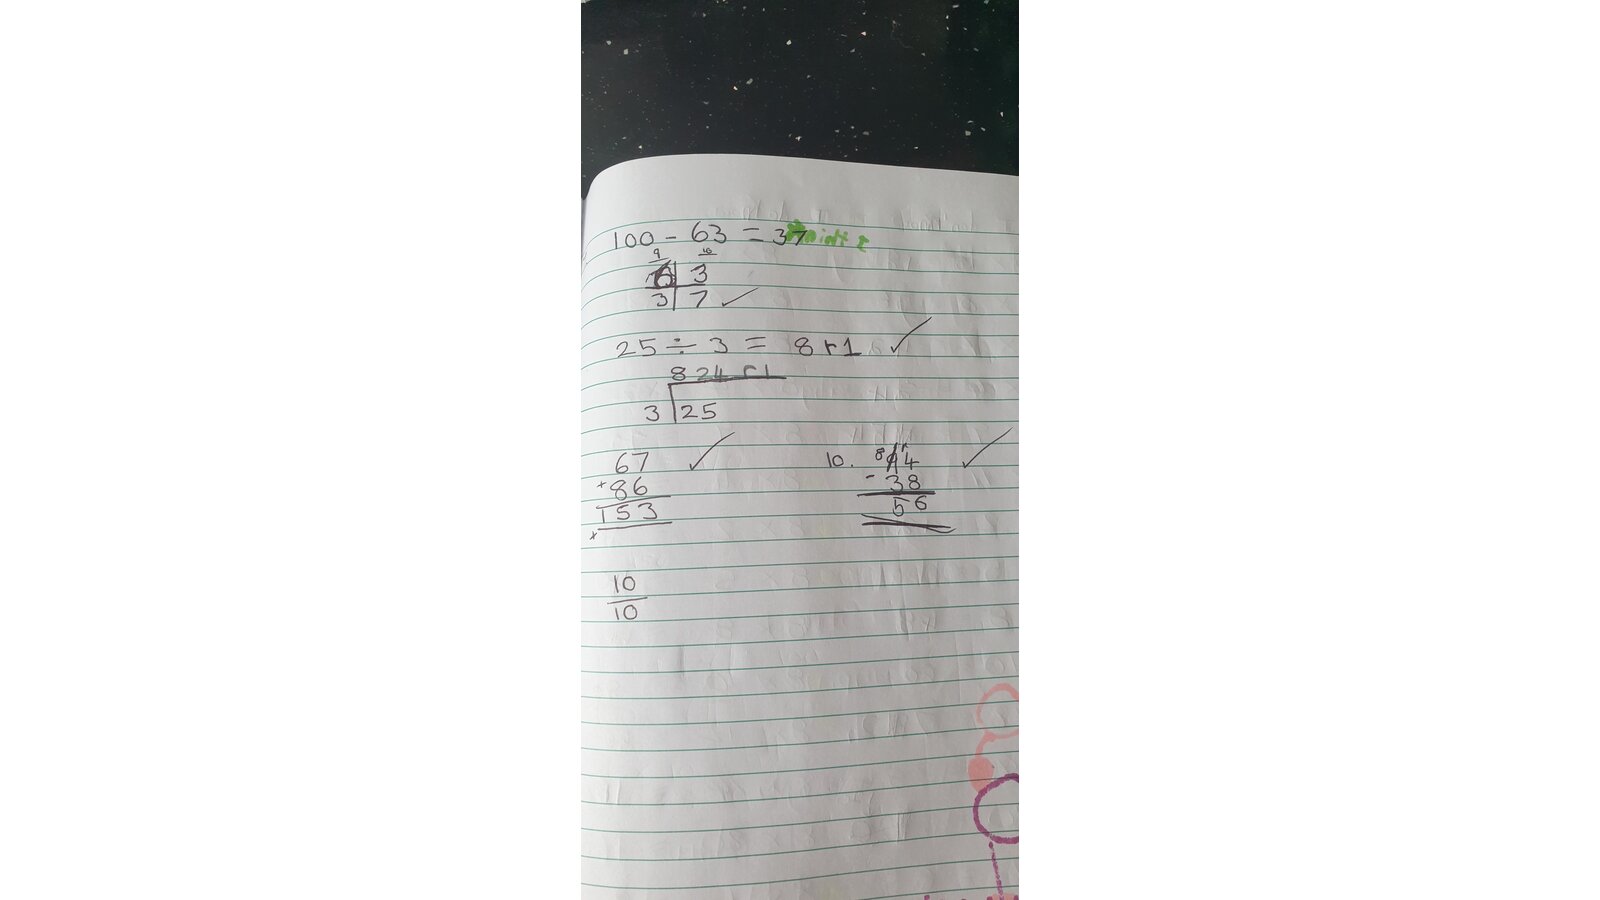 100 - 63 = 37
9 10
6 3
3 7 ✓
25 ÷ 3 = 8 r 1 ✓
824 r 1
3 25
67 ✓
+ 86
153
10. 8 9 1 4 ✓
- 38
56
10
10